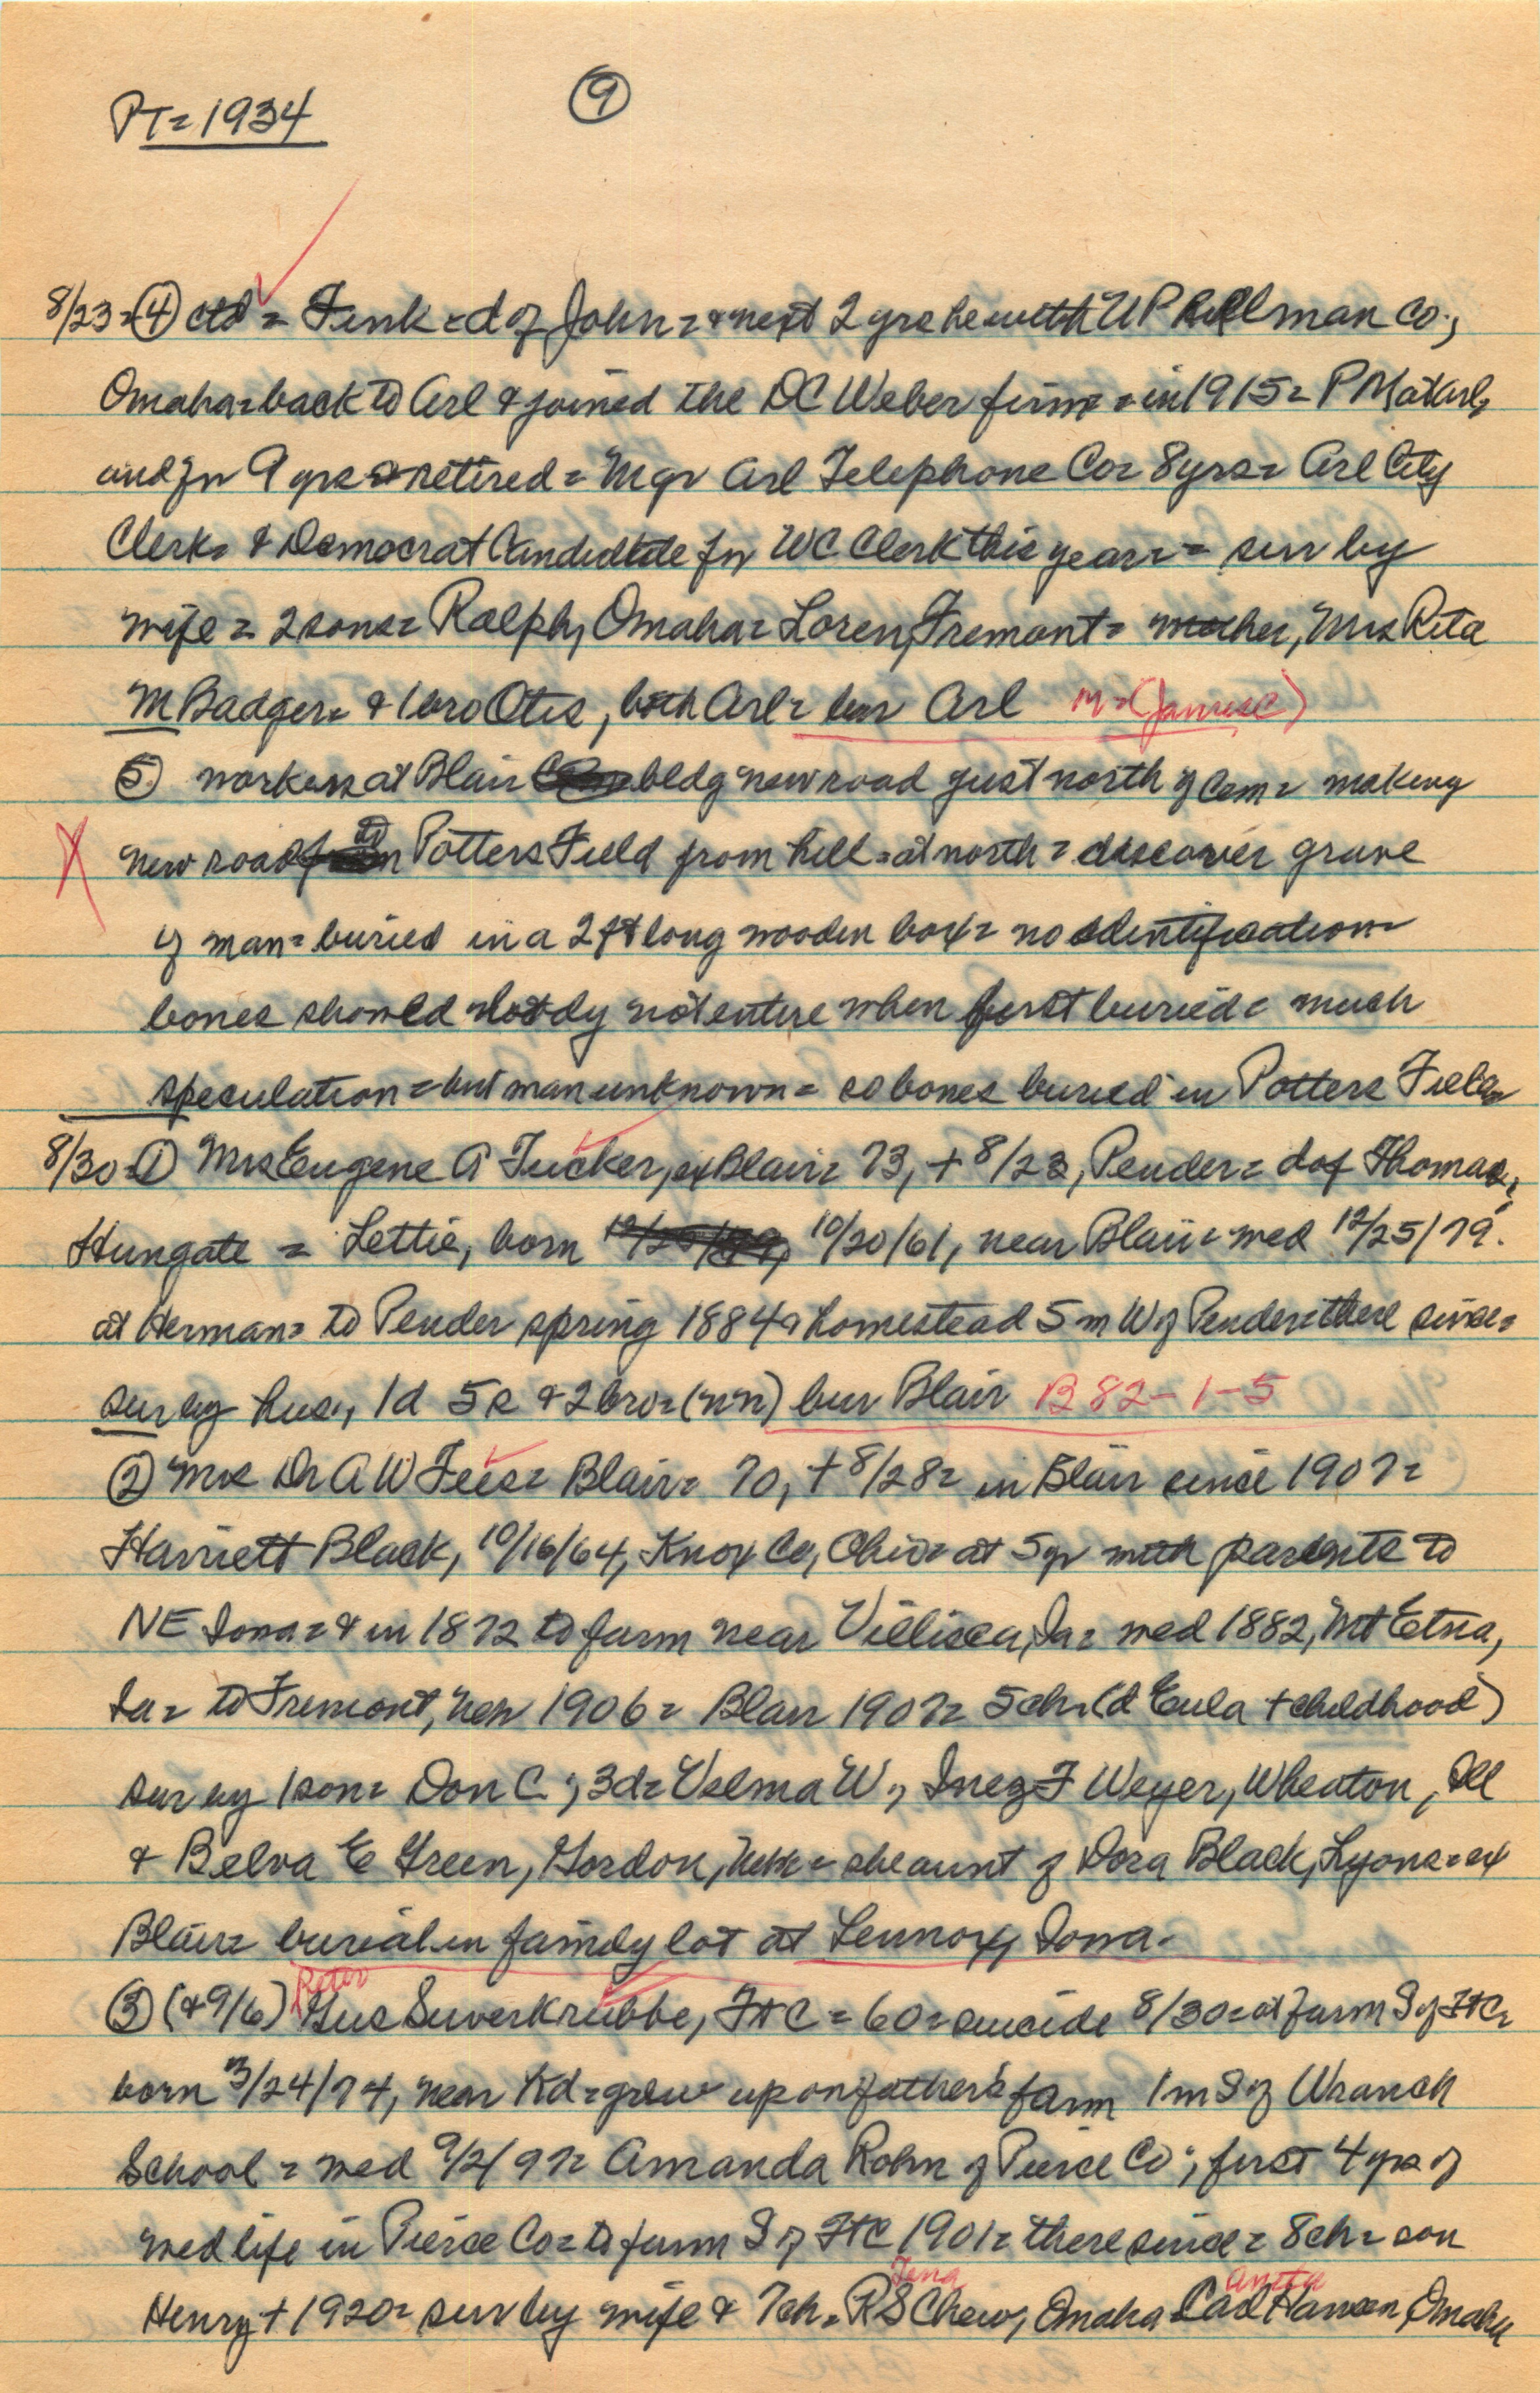 PT = 1934
9
8/23 = 4 ctd = Fenk = d of John = & next 2 yrs he with UP Pullman Co.,
Omaha = back to Arl & joined the DC Weber firm = in 1915 = PM at Arl,
and for 9 yrs & retired = Mgr Arl Telephone Co = 8 yrs = Arl City
Clerk = & Democrat Candidate for WC Clerk this year = = sur by
wife = 2 sons = Ralph, Omaha = Loren, Fremont = mother, Mrs Rita
M Badger = & 1 bro Otis, both Arl = bur Arl M = (Janusee)
5 workers at Blair bldg new road just north of Cem = making
new road to Potters Field from hill = at north = discover grave
of man = buried in a 2 ft long wooden box = no identification =
bones showed body not entire when first buried = much
speculation = but man unknown = so bones buried in Potters Field =
8/30 = 1 Mrs Eugene A Tucker, ex Blair = 73, + 8/23, Pender = d of Thomas
Hungate = Lettie, born 10/20/61, near Blair = med 12/25/79.
at Herman = to Pender spring 1884 = homestead 5 m W of Pender = there since =
sur by hus., 1d 5s & 2 bro = (nn) bur Blair B 82 - 1 - 5
2 Mrs Dr A W Fees = Blair = 70, + 8/28 = in Blair since 1907 =
Harriett Black, 10/16/64, Knox Co, Ohio = at 5 yr with parents to
NE Iowa = & in 1872 to farm near Villisca, Ia = med 1882, Mt Etna,
Ia = to Fremont, Neb 1906 = Blair 1907 = 5 ch = (d Eula + childhood)
sur by 1 son = Don C.; 3d = Velma W., Inez F Weyer, Wheaton, Ill
& Belva E Green, Gordon, Nebr = she aunt of Dora Black, Lyons = ex
Blair = burial in family lot at Lennox, Iowa.
3 (& 9/6) Gus Suverkrubbe, FtC = 60 = suicide 8/30 = at farm S of FtC =
born 3/24/74, near Kd = grew up on father's farm 1 m S of Wranch
School = med 9/2/97 = Amanda Rohn of Pierce Co.; first 4 yrs of
wed life in Pierce Co = to farm S of FtC 1901 = there since = 8 ch = son
Tena Anita
Henry + 1920 = sur by wife & 7 ch = R S Chew, Omaha = Carl Hansen, Omaha